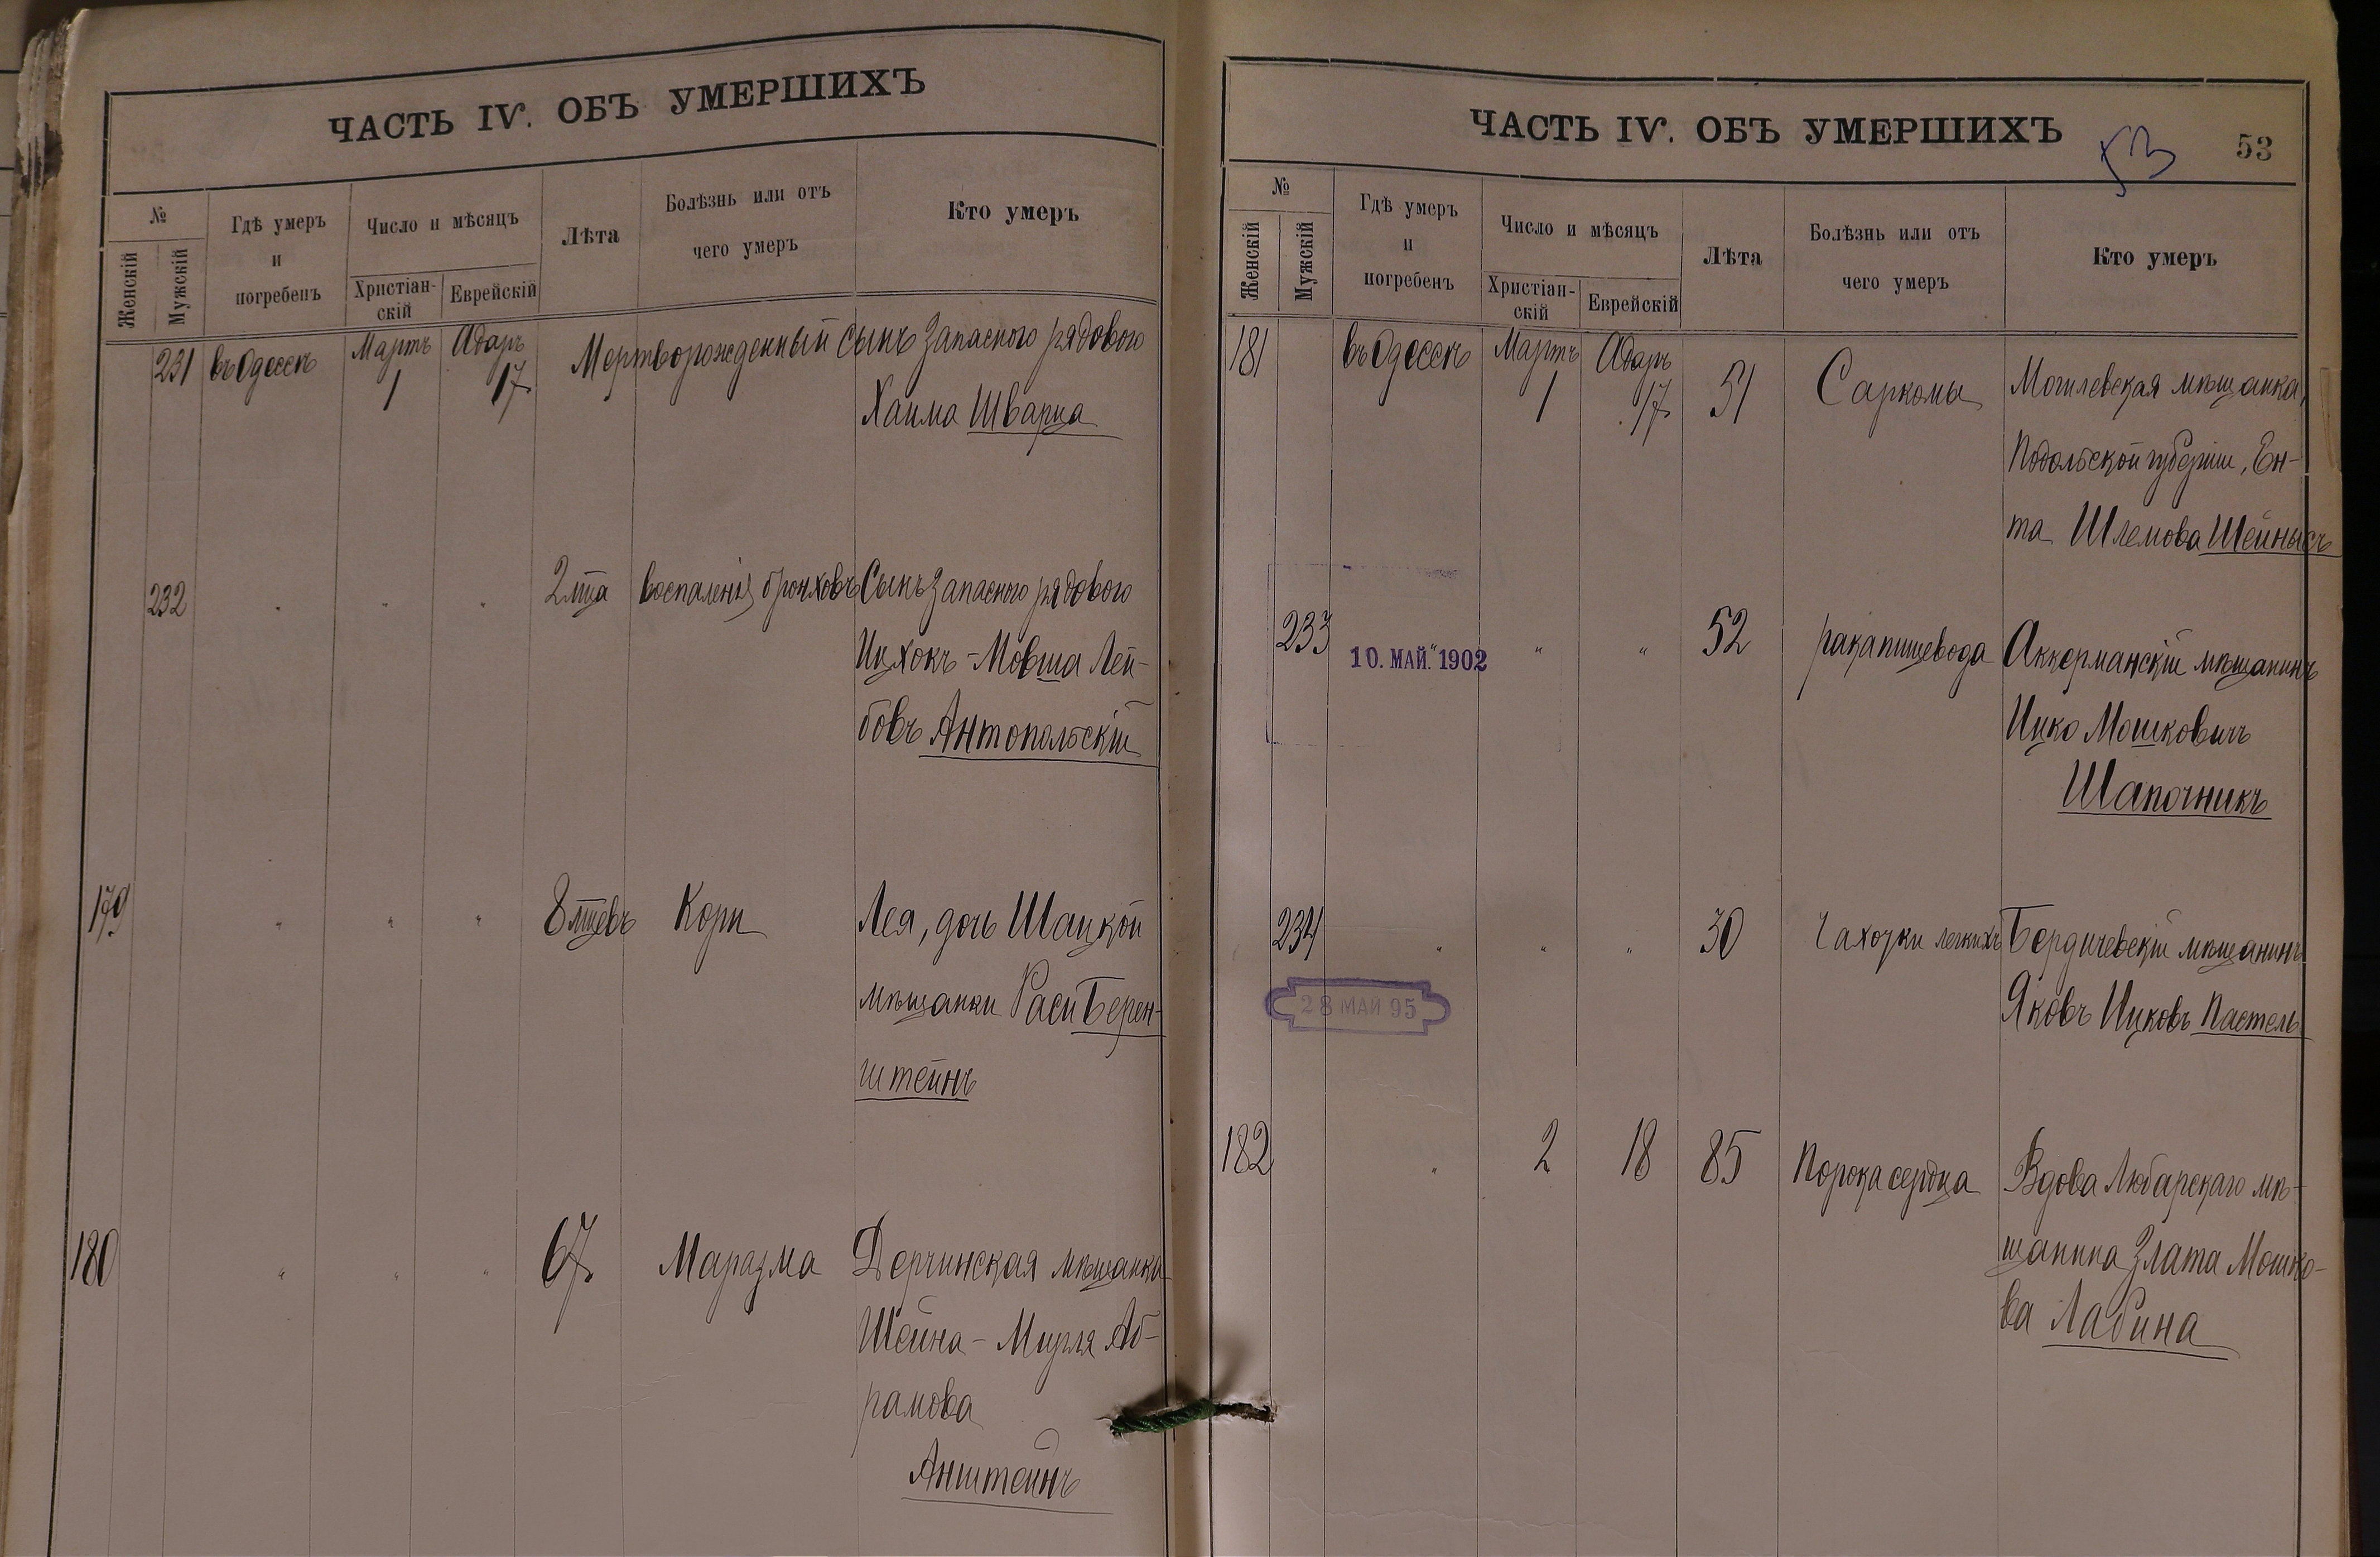 ЧАСТЬ IV. ОБЪ УМЕРШИХЪ
№
Женскій
Мужскій
Гдѣ умеръ
и
погребенъ
Число и мѣсяцъ
Христіан-
скій
Еврейскій
Лѣта
Болѣзнь или отъ
чего умеръ
Кто умеръ
231 въ Одессѣ Мартъ 1 Адаръ 17 Мертворожденный сынъ запасного рядового
Хаима Шварца
232 " " " 2 лѣта воспаленія бронховъ Сынъ запасного рядового
Ицхокъ-Мовша Лей-
бовъ Антопольскій
179 " " " 8 мѣсцевъ Кори Лея, дочь Шацкой
мѣщанки Раси Берен-
штейнъ
180 " " " 67 Маразма Дерчинская мѣщанка
Шейна-Мирля Аб-
рамова
Анштейнъ
ЧАСТЬ IV. ОБЪ УМЕРШИХЪ
53
53
№
Женскій
Мужскій
Гдѣ умеръ
и
погребенъ
Число и мѣсяцъ
Христіан-
скій
Еврейскій
Лѣта
Болѣзнь или отъ
чего умеръ
Кто умеръ
181 въ Одессѣ Мартъ 1 Адаръ 17 51 Саркомы Могилевская мѣщанка,
Подольской губерніи, Ен-
та Шлемова Шейнысъ
233 " " " 52 рака пищевода Аккерманскій мѣщанинъ
10. МАЙ. 1902
Ицко Мошковичъ
Шапочникъ
234 " " " 30 Чахотки легкихъ Бердичевскій мѣщанинъ
28 МАЙ 95
Яковъ Ицковъ Пастель
182 " 2 18 85 Порока сердца Вдова Любарскаго мѣ-
щанина Злата Мошко-
ва Лабина